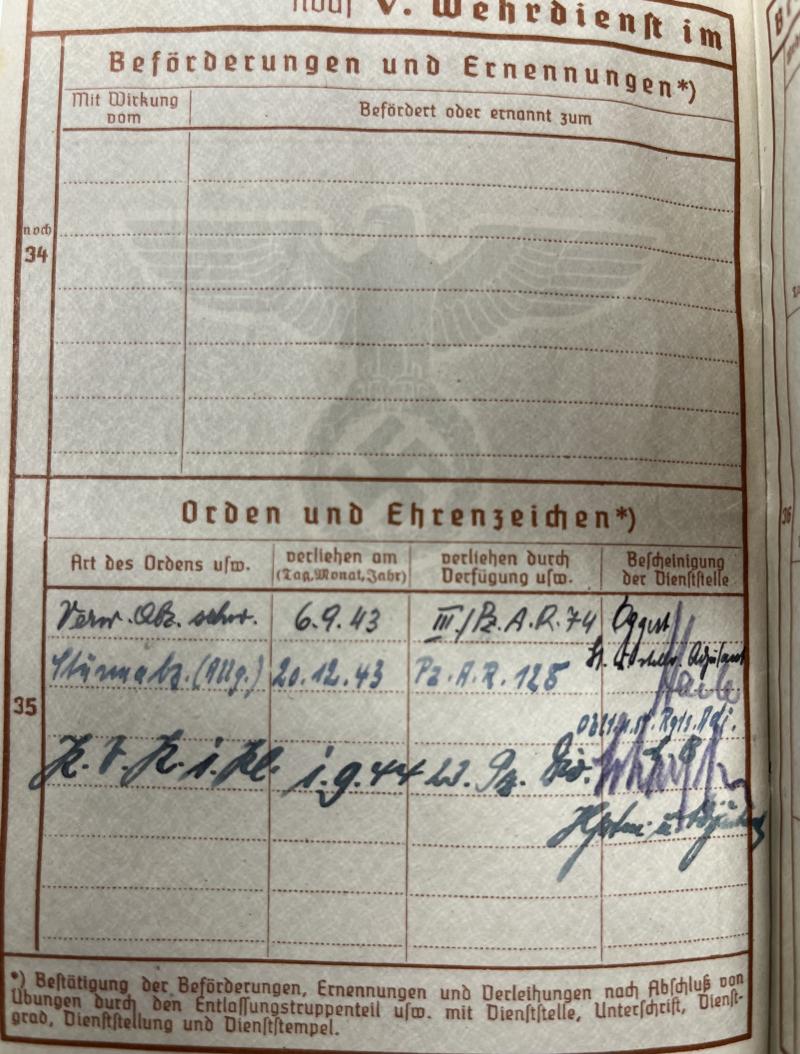 noch V. Wehrdienst im
Beförderungen und Ernennungen*)
Mit Wirkung vom
Befördert oder ernannt zum
noch 34
Orden und Ehrenzeichen*)
Art des Ordens usw.
verliehen am (Tag, Monat, Jahr)
verliehen durch Verfügung usw.
Bescheinigung der Dienststelle
35
Verw. Abz. schw. 6.9.43 III/Pz.A.R.74
Sturmabz. (Allg.) 20.12.43 Pz.A.R. 128
Lt. u. stellv. Adjutant
Rgts. Adj.
K.V.K. 1.9.44 23. Pz. Div.
Hptm. u.
*) Bestätigung der Beförderungen, Ernennungen und Verleihungen nach Abschluß von
Übungen durch den Entlassungstruppenteil usw. mit Dienststelle, Unterschrift, Dienst-
grad, Dienststellung und Dienststempel.